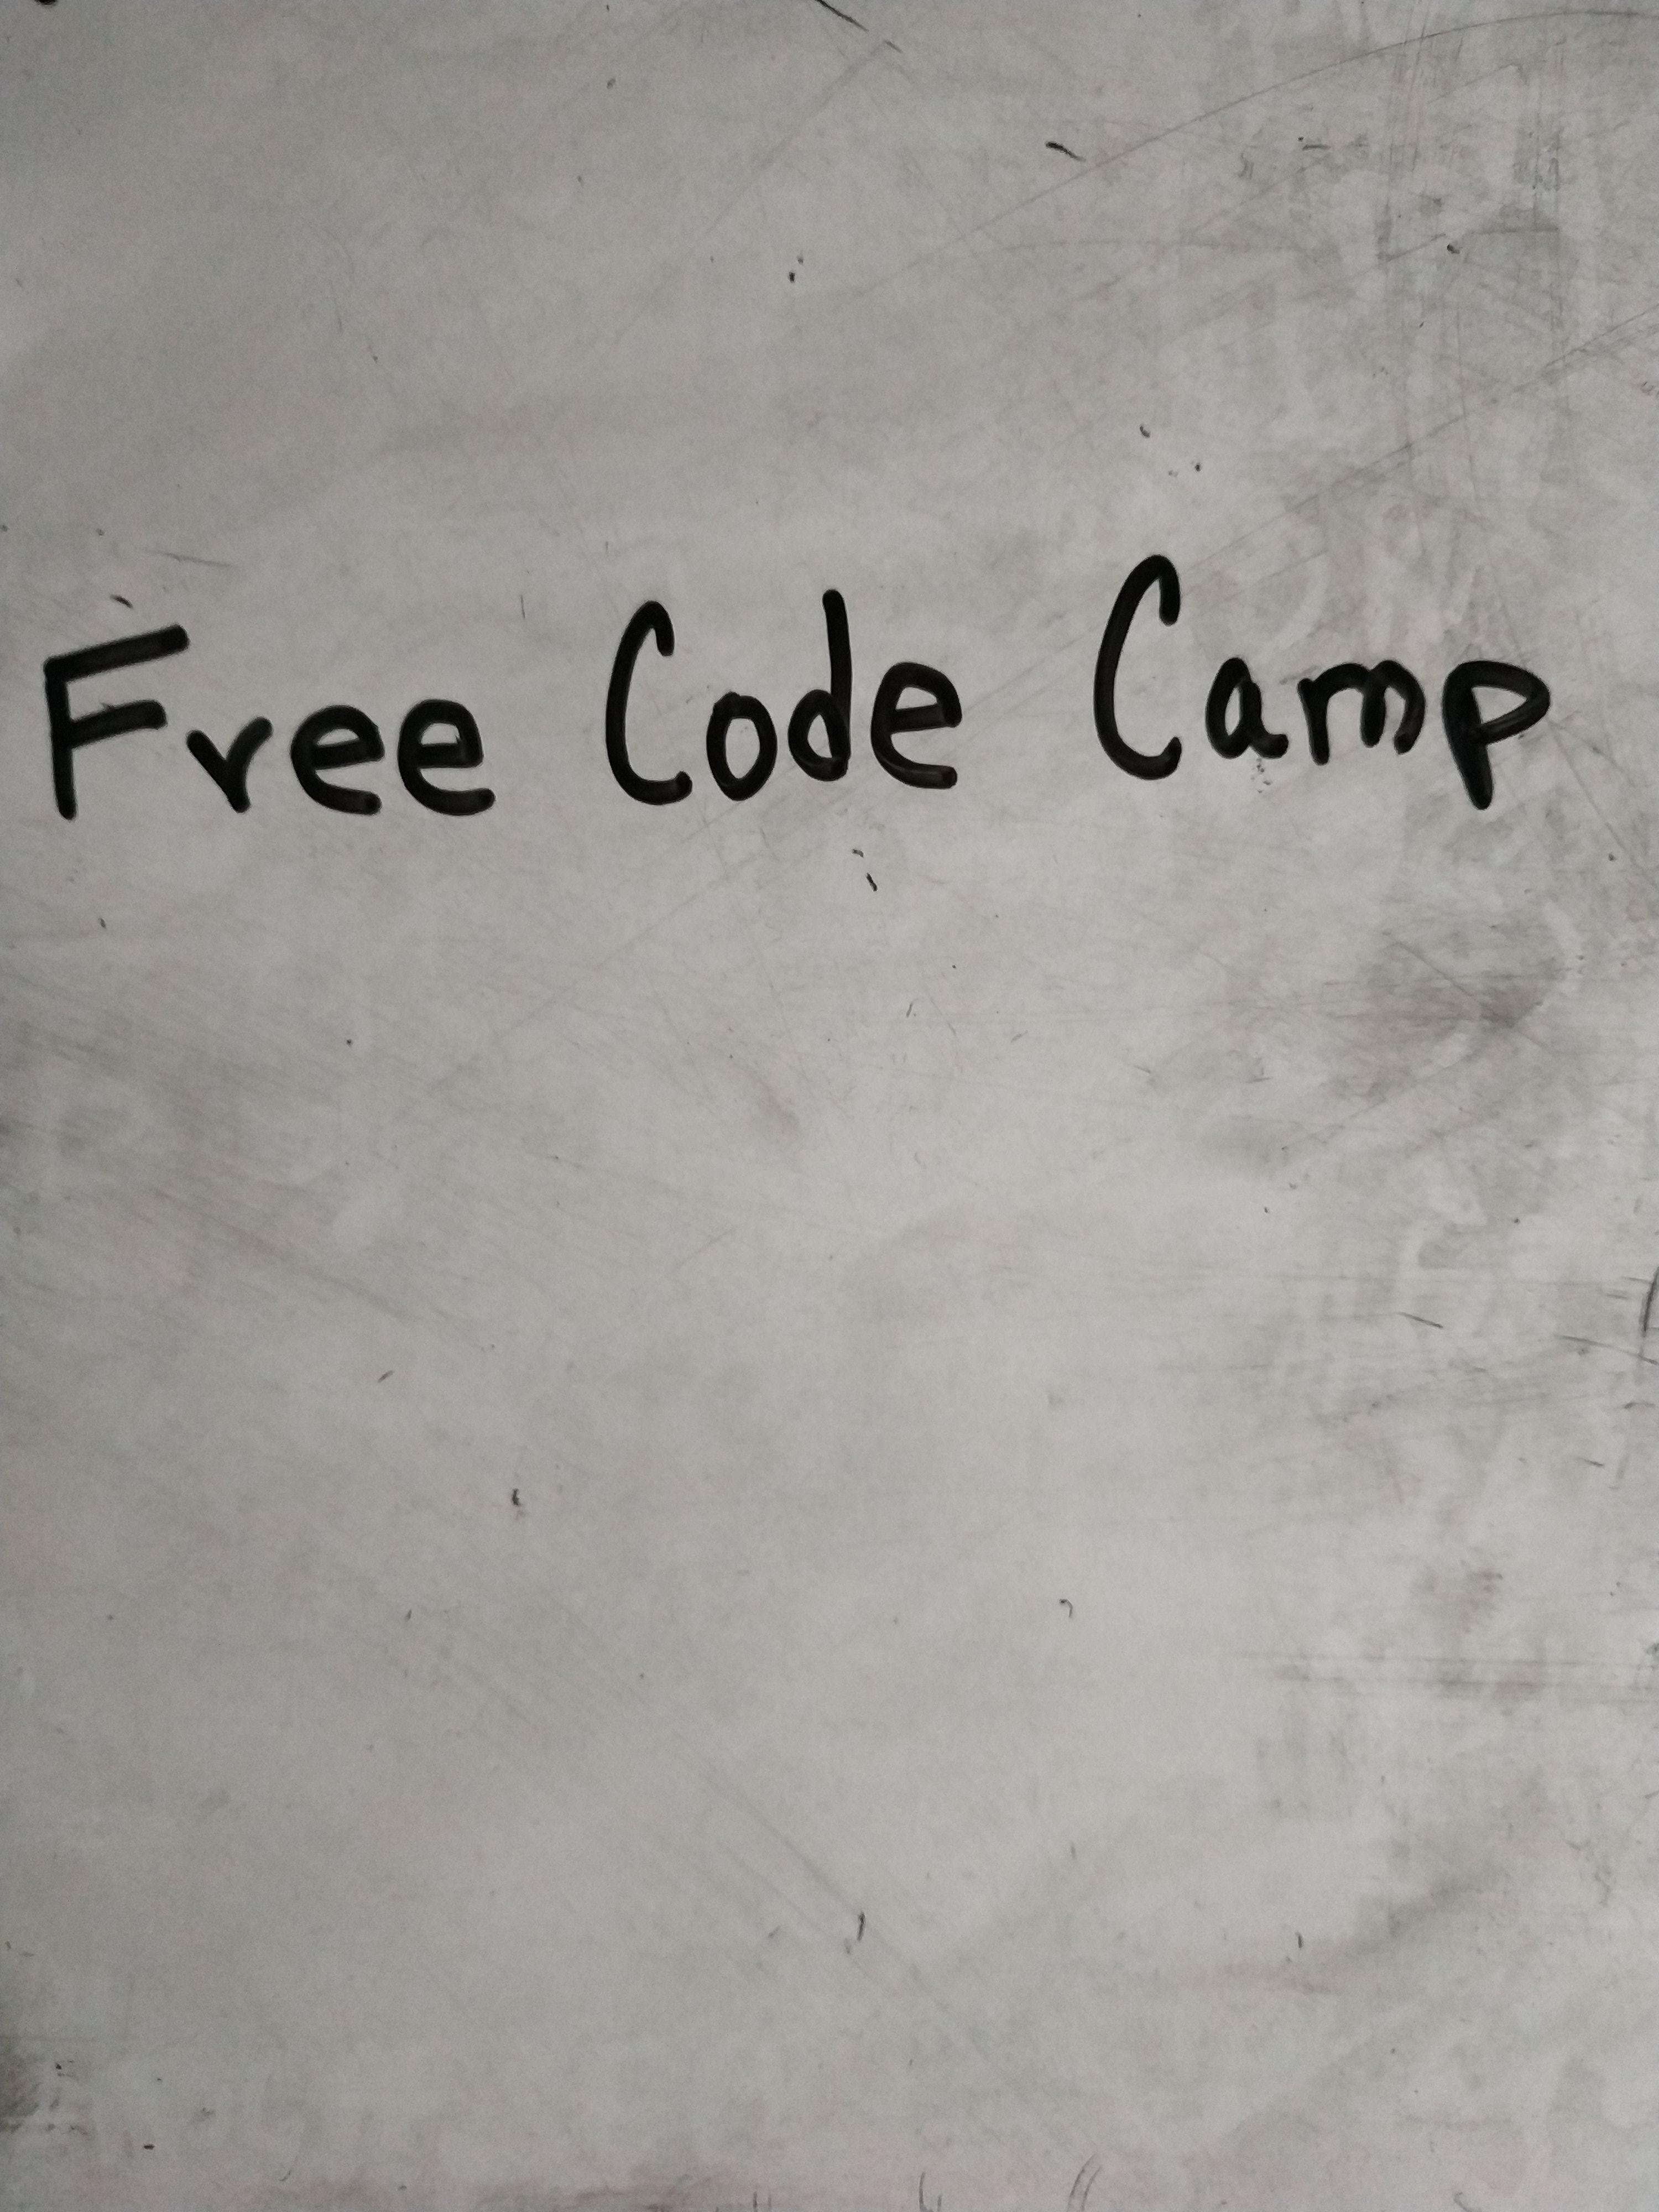 Free Code Camp